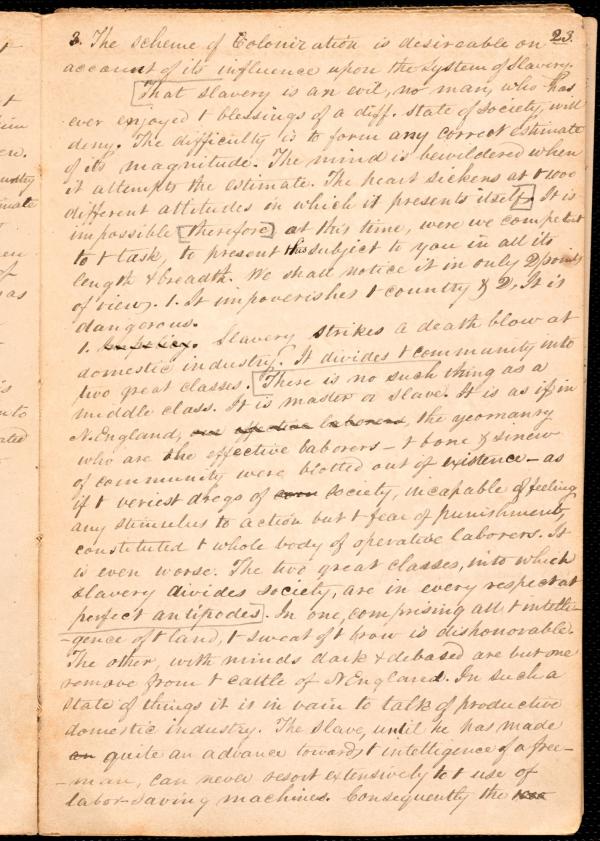 23.
3. The scheme of Colonization is desireable on
account of its influence upon the system of Slavery.
That slavery is an evil, no man, who has
ever enjoyed t blessings of a diff. state of society, will
deny. The difficulty is to form any correct estimate
of its magnitude. The mind is bewildered when
it attempts the estimate. The heart sickens at t 1000
different attitudes in which it presents itself. It is
impossible therefore at this time, were we competent
to t task, to present this subject to you in all its
length & breadth. We shall notice it in only 2 points
of view. 1. It impoverishes t country & 2. It is
dangerous.
1. Slavery strikes a death blow at
domestic industry. It divides t community into
two great classes. There is no such thing as a
middle class. It is master or slave. It is as if in
N. England, are effective laborers, the yeomanry
who are the effective laborers – t bone & sinew
of community were blotted out of existence – as
if t veriest dregs of society, incapable of feeling
any stimulus to action but t fear of punishment,
constituted t whole body of operative laborers. It
is even worse. The two great classes, into which
slavery divides society, are in every respect at
perfect antipodes. In one, comprising all t intelli-
-gence of t land, t sweat of t brow is dishonorable.
The other, with minds dark & debased are but one
remove from t cattle of N England. In such a
state of things it is in vain to talk of productive
domestic industry. The slave, until he has made
an quite an advance towards t intelligence of a free-
-man, can never resort extensively to t use of
labor-saving machines. Consequently the